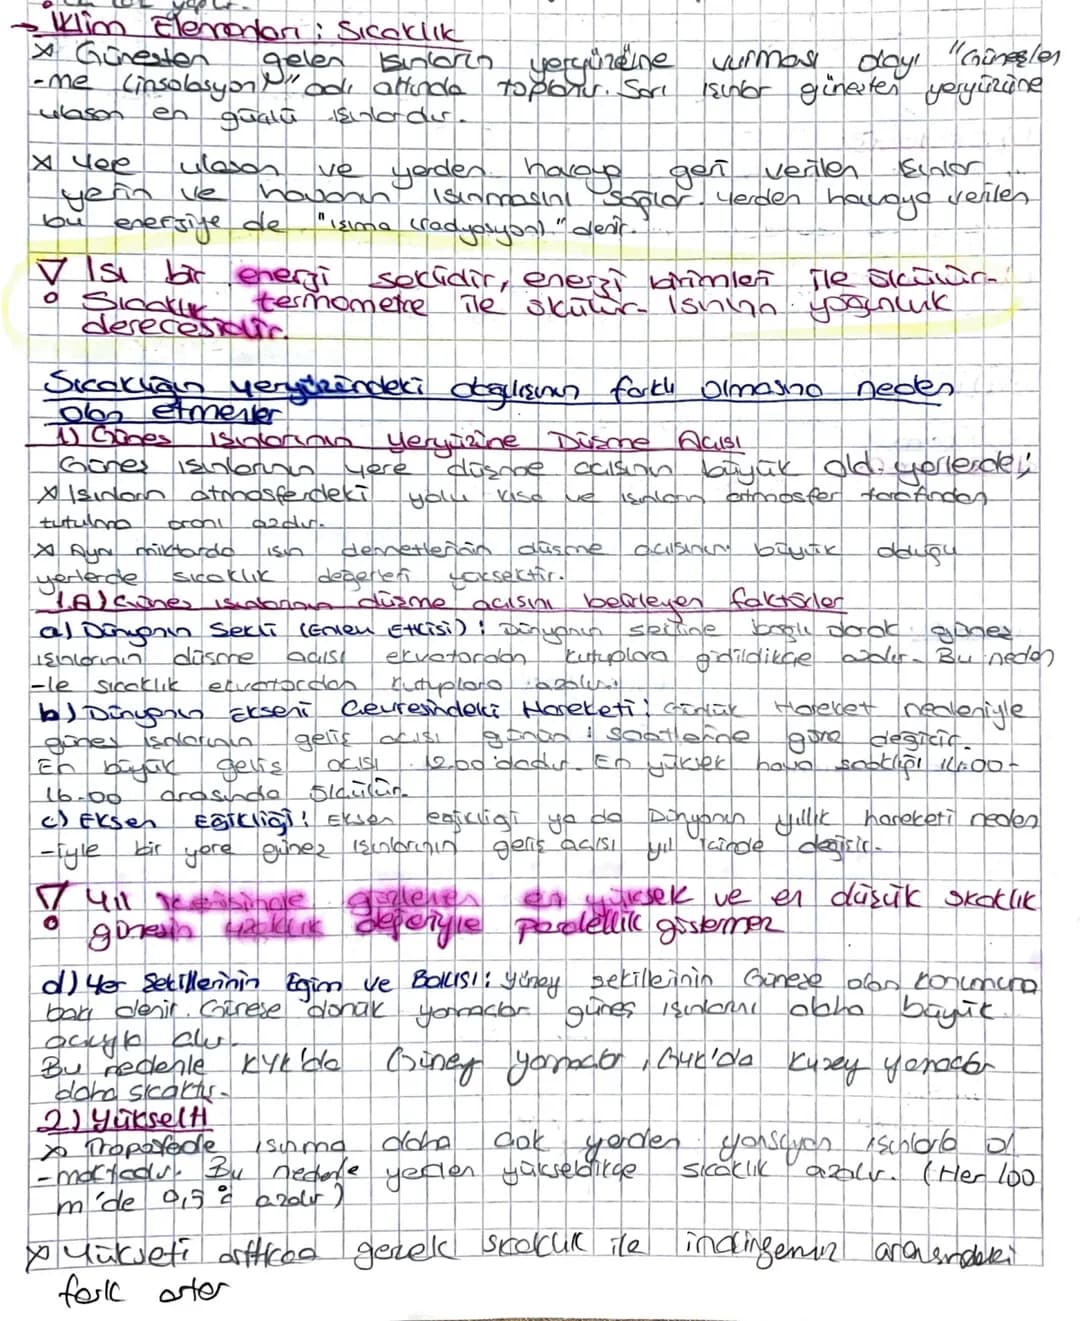 → İklim Elemanları : Sıcaklık
x Güneşten gelen ışınların yeryüzüne vurması olayı "Güneşlen
-me (insolasyon)" adı altında toplanır. Sarı ışınlar güneşten yeryüzüne
ulaşan en güçlü ışınlardır.
x Yere ulaşan ve yerden havaya geri verilen ışınlar
yerin ve havanın ısınmasını sağlar. Yerden havaya verilen
bu enerjiye de "ışıma (radyasyon)." denir.
Isı bir enerji şeklidir, enerji birimleri ile ölçülür-
Sıcaklık termometre ile ölçülür- Isının yoğunluk
derecesidir.
Sıcaklığın yeryüzündeki dağılışının farklı olmasına neden
olan etmenler
1) Güneş ışınlarının Yeryüzüne Düşme Açısı
Güneş ışınlarının yere düşme açısının büyük old. yerlerde;
x Işınların atmosferdeki yolu kısa ve ışınların atmosfer tarafından
tutulma oranı azdır.
x Aynı miktarda ışın demetlerinin düşme açısının büyük olduğu
yerlerde sıcaklık değerleri yüksektir.
1.A) Güneş ışınlarının düşme açısını belirleyen faktörler
a) Dünyanın Şekli (Enlem Etkisi) : Dünyanın şekline bağlı olarak güneş
ışınlarının düşme açısı ekvatordan kutuplara gidildikçe azalır. Bu neden
-le sıcaklık ekvatordan kutuplara azalır.
b) Dünyanın Ekseni Çevresindeki Hareketi : Günlük Hareket nedeniyle
güneş ışınlarının geliş açısı günün saatlerine göre değişir.
En büyük geliş açısı 12.00'dadır. En yüksek hava sıcaklığı 14.00-
16.00 arasında ölçülür.
c) Eksen Eğikliği : Eksen eğikliği ya da Dünyanın yıllık hareketi neden
-iyle bir yere güneş ışınlarının geliş açısı yıl içinde değişir.
Yıl içerisinde gözlenen en yüksek ve en düşük sıcaklık
güneşin yükseklik değeriyle paralellik göstermez
d) Yer Şekillerinin Eğim ve Bakısı : Yüney şekillerinin Güneşe olan konumuna
bakı denir. Güneşe dönük yamaçlar güneş ışınlarını daha büyük
açıyla alır.
Bu nedenle KYK'da Güney yamaçlar, GYK'da Kuzey yamaçlar
daha sıcaktır.
2) Yükselti
x Troposferde ısınma daha çok yerden yansıyan ışınlarla ol
-maktadır. Bu nedenle yerden yükseldikçe sıcaklık azalır. (Her 100
m'de 0,5 °C azalır)
x Yükselti arttıkça gerçek sıcaklık ile indirgenmiş arasındaki
fark artar